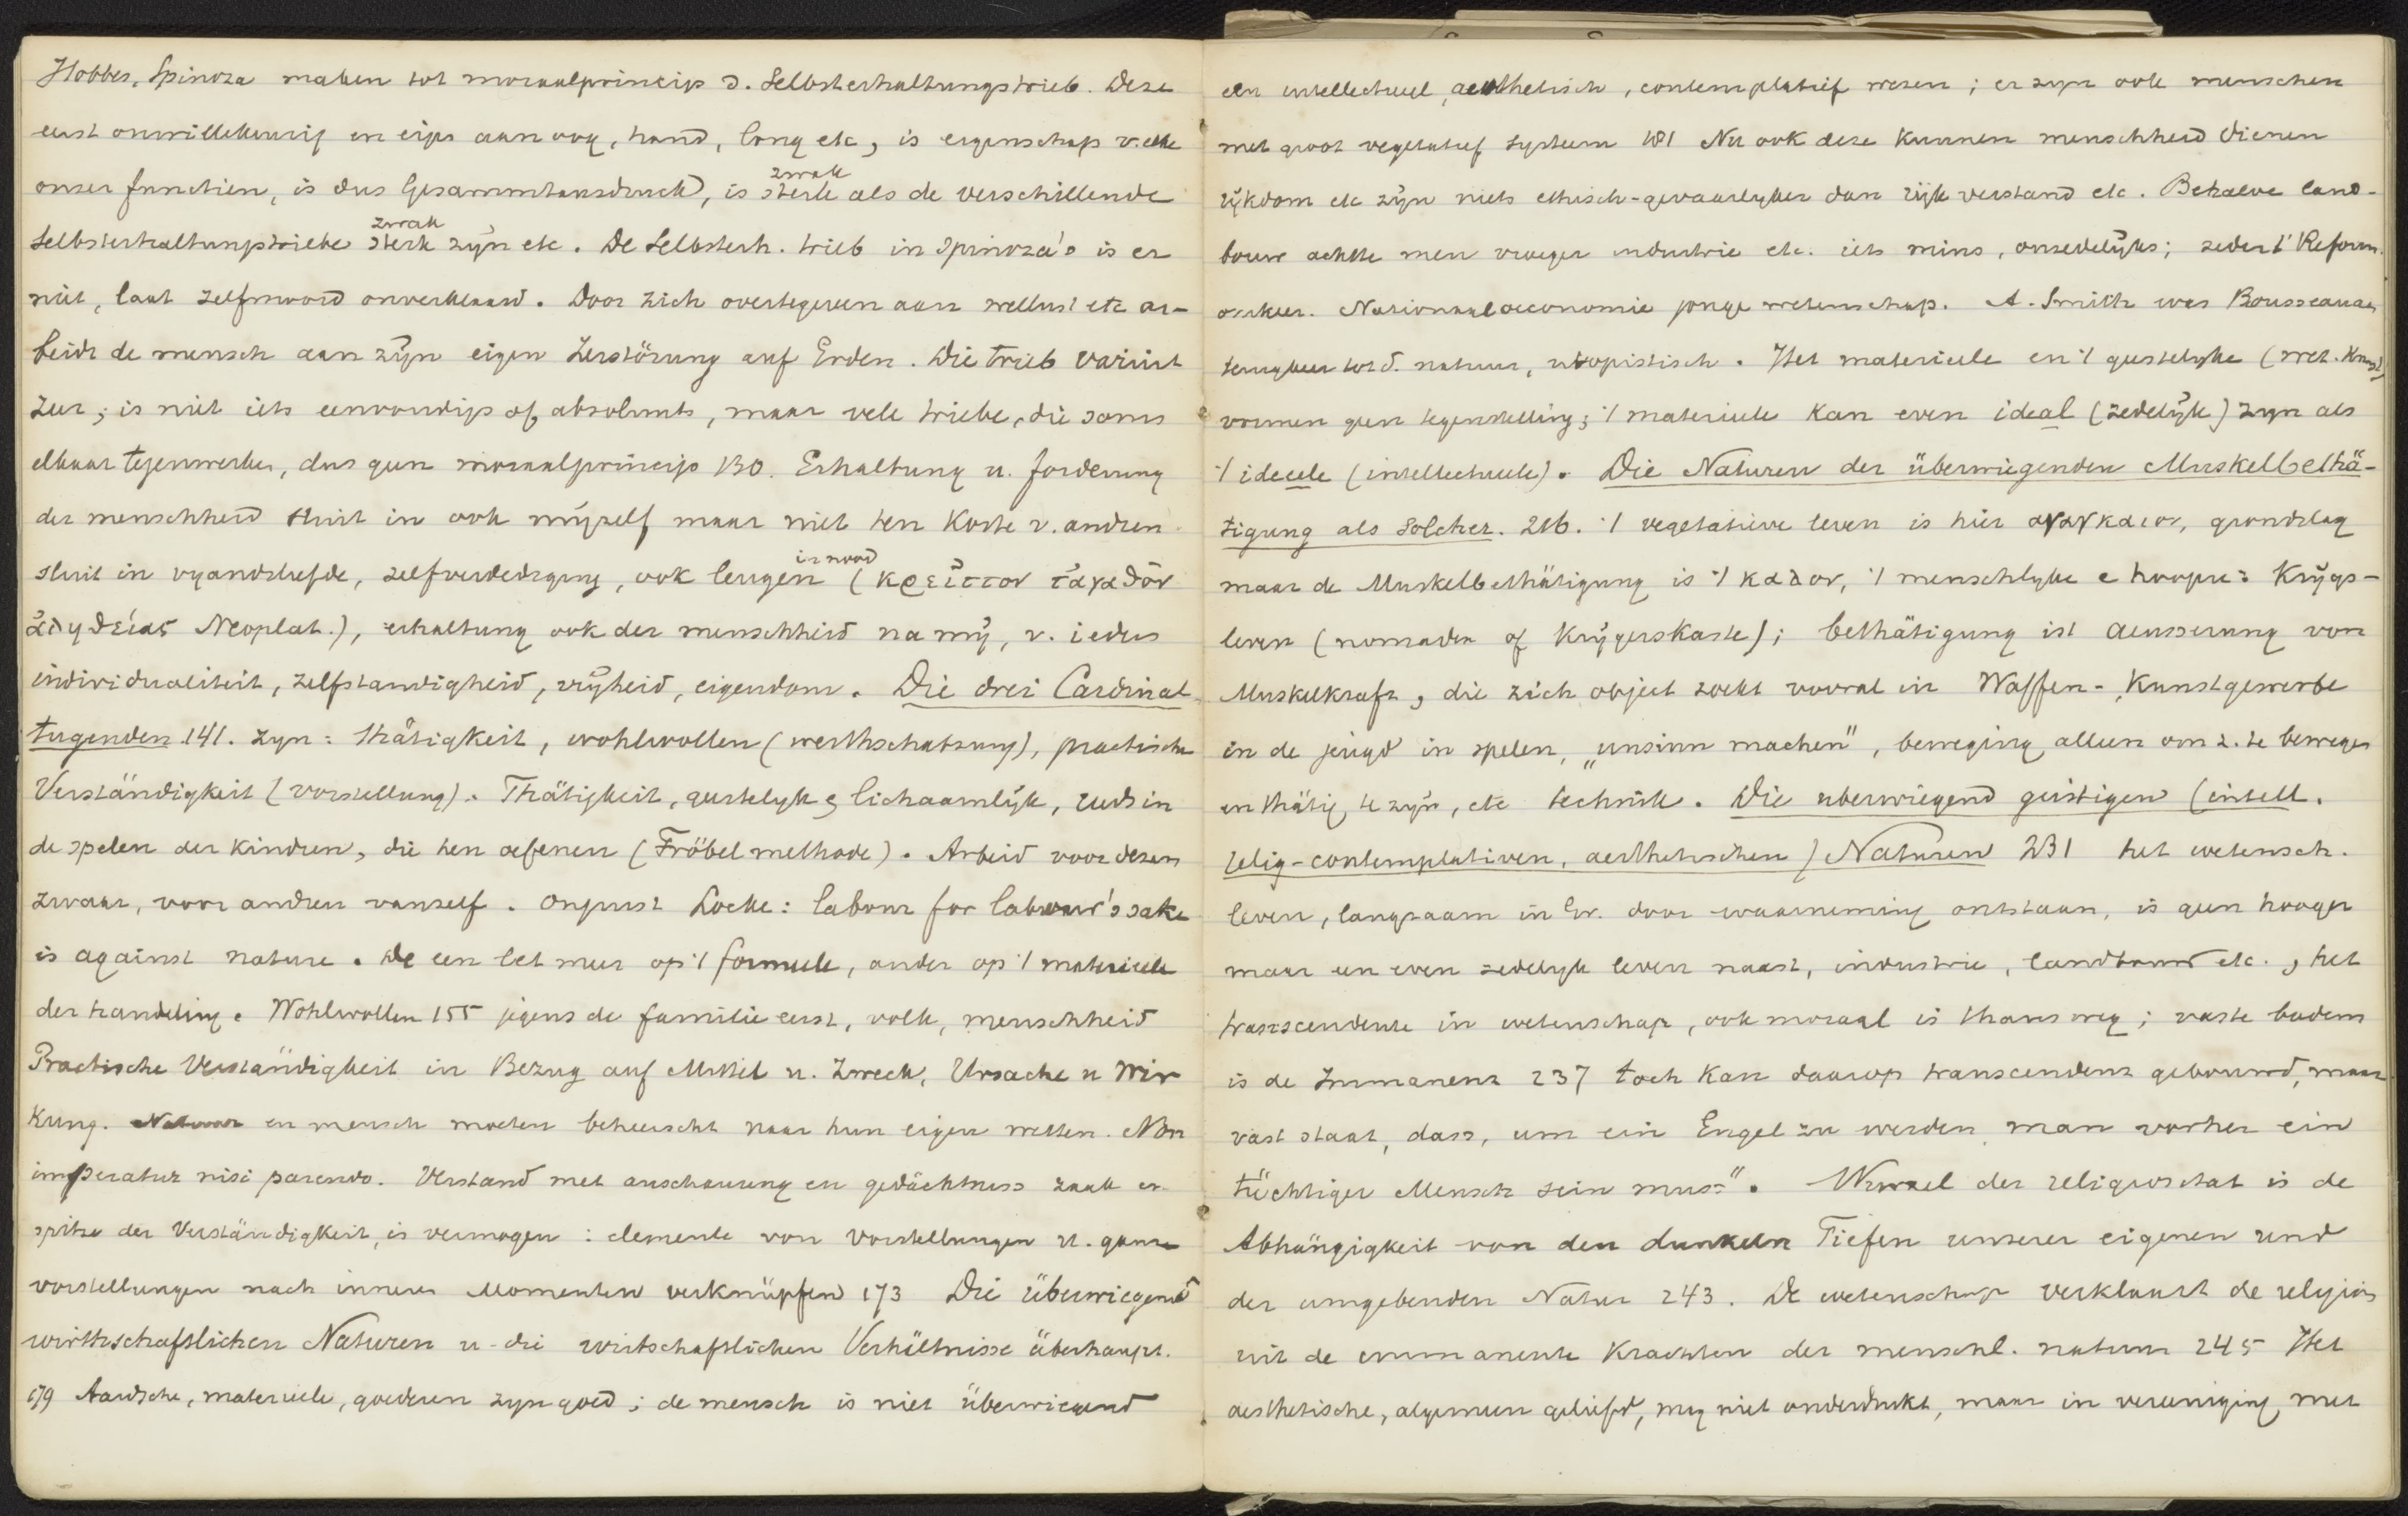 Hobbes, Spinoza maken tot moraalprincip d. Selbsterhaltungstrieb. Deze
eerst onwillekeurig en eigen aan oog, hand, long etc, is eigenschap v. elke
onzer functien, is dus Gesammtausdruck, is sterk als de verschillende
zwak
Selbsterhaltungstriebe sterk zijn etc. De Selbsterh. trieb in Spinoza's is er
zwak
niet, laat zelfmoord onverklaard. Door zich overtegeven aan wellust etc ar-
beidt de mensch aan zijn eigen Zerstörung auf Erden. Die trieb variirt
zeer; is niet iets eenvoudigs of absoluuts, maar vele triebe, die soms
elkaar tegenwerken, dus geen moraalprincip 130. Erhaltung u. forderung
der menschheid sluit in ook mijzelf maar niet ten koste v. andren
sluit in vyandsliefde, zelfverdediging, ook leugen (κρεῖττον τἀγαθὸν
in nood
ἀληθείας Neoplat.), erhaltung ook der menschheid na mij, v. ieders
individualiteit, zelfstandigheid, vrijheid, eigendom. Die drei Cardinal-
tugenden 141. zyn: thätigkeit, wohlwollen (werthschatzung), practische
Verständigkeit (vorstellung). Thätigkeit, geestelyk & lichaamlijk, reeds in
de spelen der kindren, die hen oefenen (Fröbel methode). Arbeid voor dezen
zwaar, voor andren vanzelf. Onjuist Locke: labour for labour's sake
is against nature. De een let meer op 't formeele, ander op 't materieele
der handeling. Wohlwollen 155 jegens de familie eerst, volk, menschheid
Practische Verständigkeit in Bezug auf Mittel u. Zweck, Ursache u Wir
kung. Natuur en mensch moeten beheerscht naar hun eigen wetten. Non
imperatur nisi parendo. Verstand met anschauung en gedächtniss zaak en
spitse der Verständigkeit, is vermogen: elemente von Vorstellungen u. ganze
vorstellungen nach innern Momenten verknüpfen 173 Die überwiegend
wirthschaftlichen Naturen u. die wirtschaftlichen Verhältnisse überhaupt.
179 Aardsche, materieele, goederen zyn goed; de mensch is niet überwiegend
een intellectueel, aesthetisch, contemplatief wezen; er zyn ook menschen
met groot vegetatief systeem 181 Nu ook deze kunnen menschheid dienen
rijkdom etc zijn niets ethisch-gevaarlyker dan rijk verstand etc. Behalve land-
bouw achtte men vroeger industrie etc. iets mins, onzedelijks; sedert Reform.
omkeer. Nationaaloeconomie jonge wetenschap. A. Smith was Rousseaus
terugkeer tot d. natuur, utopistisch. Het materieele en 't geestelyke (wet. Kunst)
vormen geen tegenstelling; 't materieele kan even ideal (zedelijk) zyn als
't ideeele (intellectueele). Die Naturen der überwiegenden Muskelbethä-
tigung als Solcher. 216. 't vegetatieve leven is hier αναγκαιον, grondslag
maar de Muskelbethätigung is 't καλον, 't menschlyke & hoogere: Krijgs-
leven (nomaden of Krijgerskaste); bethätigung ist Aeusserung von
Muskelkraft, die zich object zoekt vooral in Waffen-, Kunstgewerbe
in de jeugd in spelen, „unsinn machen", beweging alleen om z. te bewegen
en thätig te zijn, etc techniek. Die uberwiegend geistigen (intell.
relig-contemplativen, aesthetischen) Naturen 231 het wetensch.
leven, langzaam in Gr. door waarneming ontstaan, is geen hooger
maar een even zedelyk leven naast, industrie, landbouw etc., het
transscendente in wetenschap, ook moraal is thans weg; vaste bodem
is de Immanenz 237 toch kan daarop transcendenz gebouwd, maar
vast staat, dass, um ein Engel zu werden, man vorher ein
tüchtiger Mensch sein muss". Wurzel der religiositat is de
Abhängigkeit von den dunkeln Tiefen unserer eigenen und
der umgebenden Natur 243. De wetenschap verklaart de religion
uit de immanente Krachten der menschl. natuur 245 Het
aesthetische, algemeen geliefd, mag niet onderdrukt, maar in vereeniging met